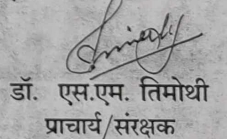 डॉ. एस.एम. तिमोथी
प्राचार्य/संरक्षक